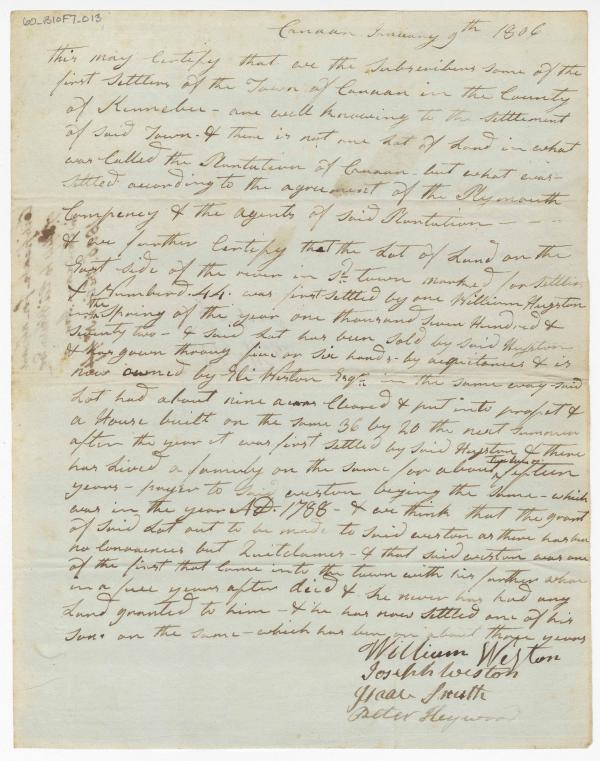 60_B10F7_013
Canaan January 9th 1806
this may Certify that we the Subscribers some of the
first Settlers of the Town of Canaan in the County
of Kennebec - are well knowing to the settlement
of said Town - & there is not one Lot of Land in what
was Called the Plantation of Canaan - but what was
settled according to the agreement of the Plymouth
Compency & the agents of said Plantation - - -
& we further Certify that the Lot of Land on the
East side of the river in sd town marked for settling
& Numberd 44 was first settled by one William Huston
in the Spring of the year one thousand seven Hundred &
seventy two - & said Lot has been sold by said Huston
& has gown throug five or six hands - by aquetances & is
now owned by Eli Weston Esqr in the same way - said
Lot had about nine acors Cleared & put into profet &
a House built on the same 36 by 20 the next summer
after the year it was first settled by said Huston & there
has Lived a famely on the same for about fifteen
years - prayer to said weston beying the same - which
was in the year AD. 1788 - & we think that the grant
of said Lot out to be made to said weston as there has ben
no Convances but Quitclames - & that said weston was one
of the first that Came into the town with his farther who
in a few years after died & he never has had any
Land granted to him - & he has now settled one of his
sons on the same - which has ben on about three years
William Weston
Joseph Weston
Isaac Smith
Peter Heywood